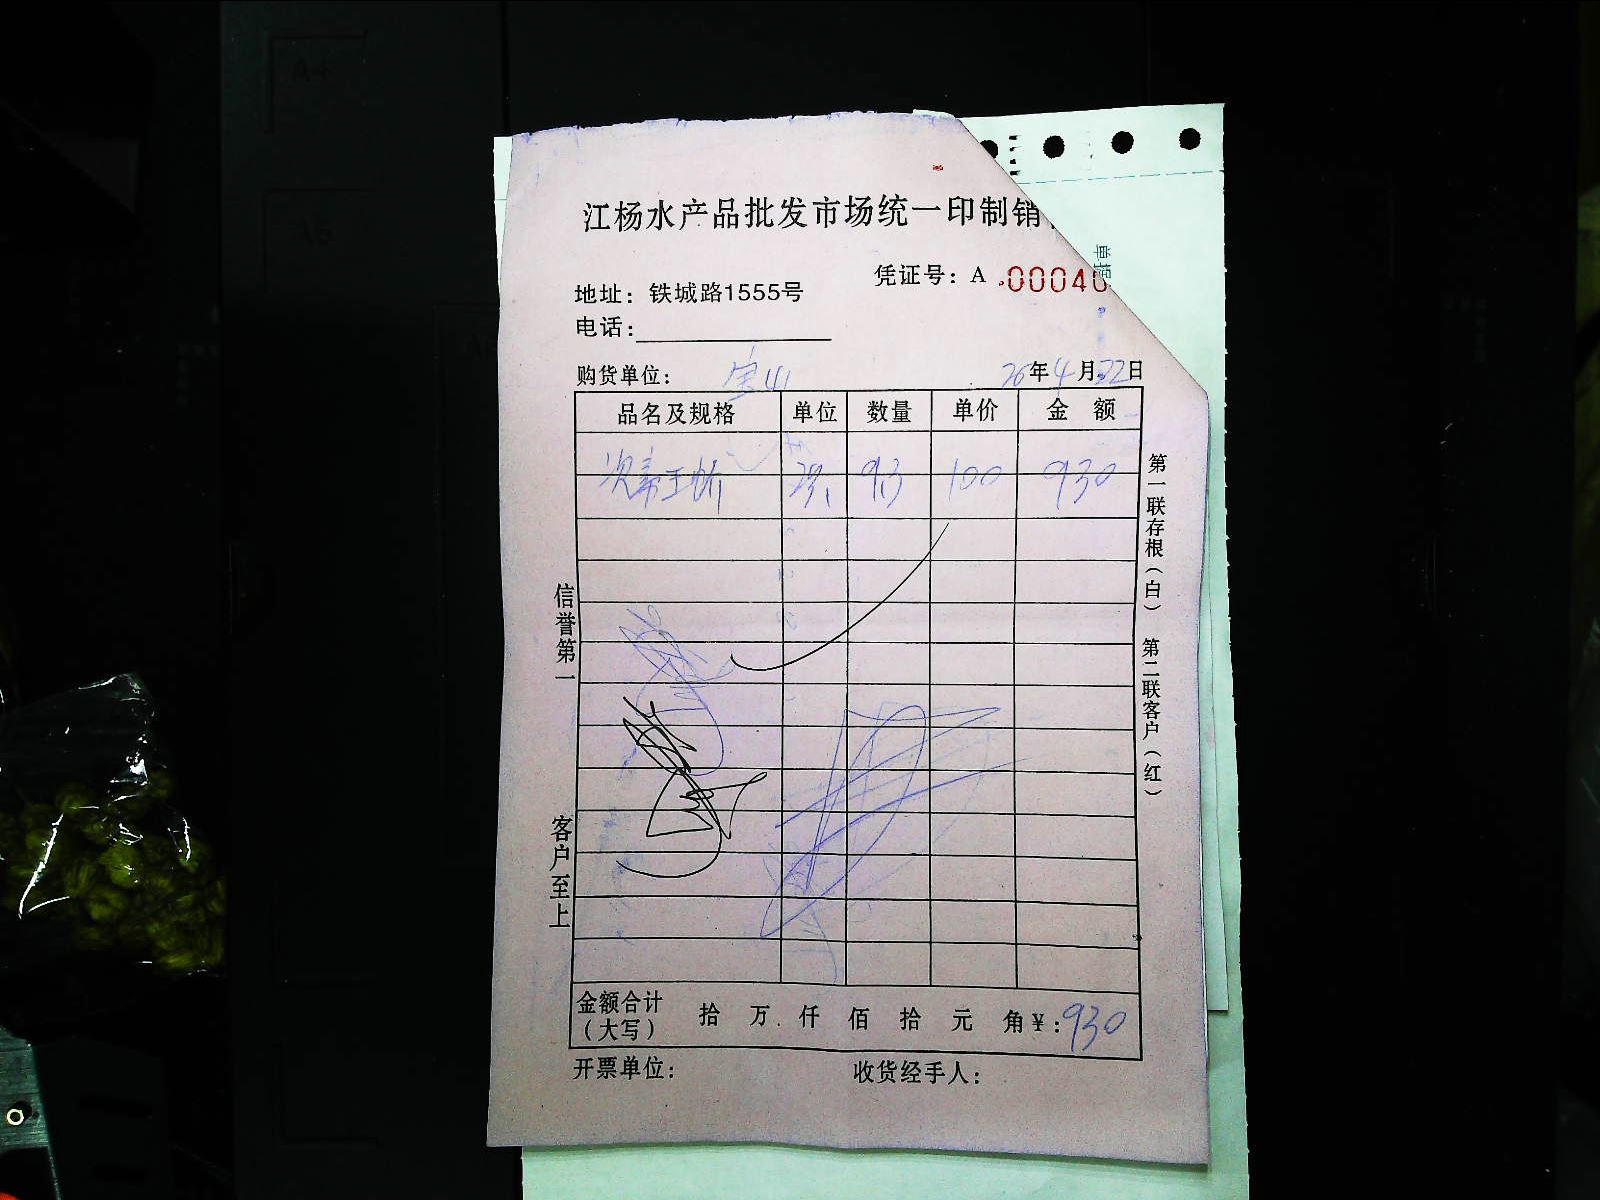 江杨水产品批发市场统一印制销
凭证号：A .00040
地址：铁城路1555号
电话：
购货单位：宝山 26年4月22日
品名及规格 单位 数量 单价 金 额
9.3 100 930
第一联存根（白） 第二联客户（红）
信誉第一
客户至上
金额合计（大写） 拾 万 仟 佰 拾 元 角￥：930
开票单位： 收货经手人：